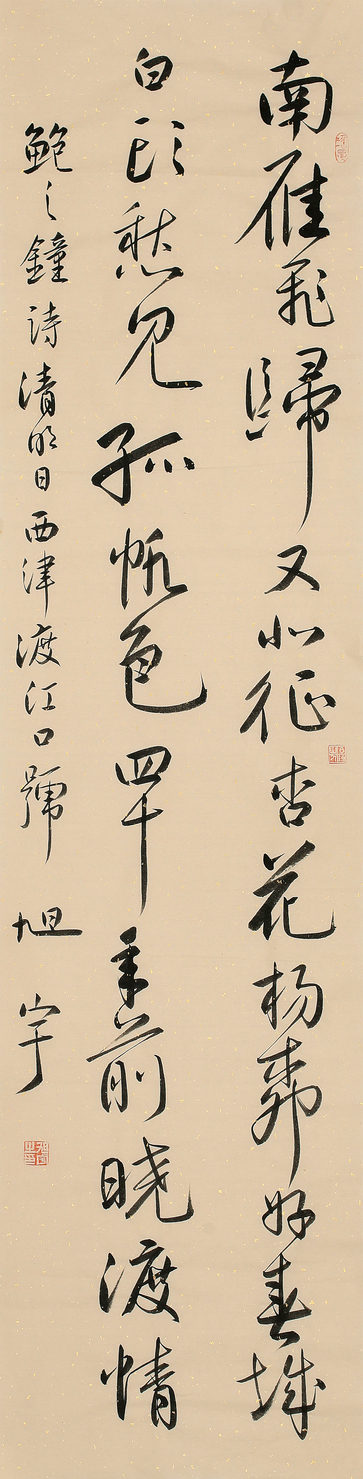 南雁飛歸又北征杏花楊柳好春城
白頭愁見孤帆色四十年前曉渡情
鮑之鐘詩清明日西津渡江口號 旭宇